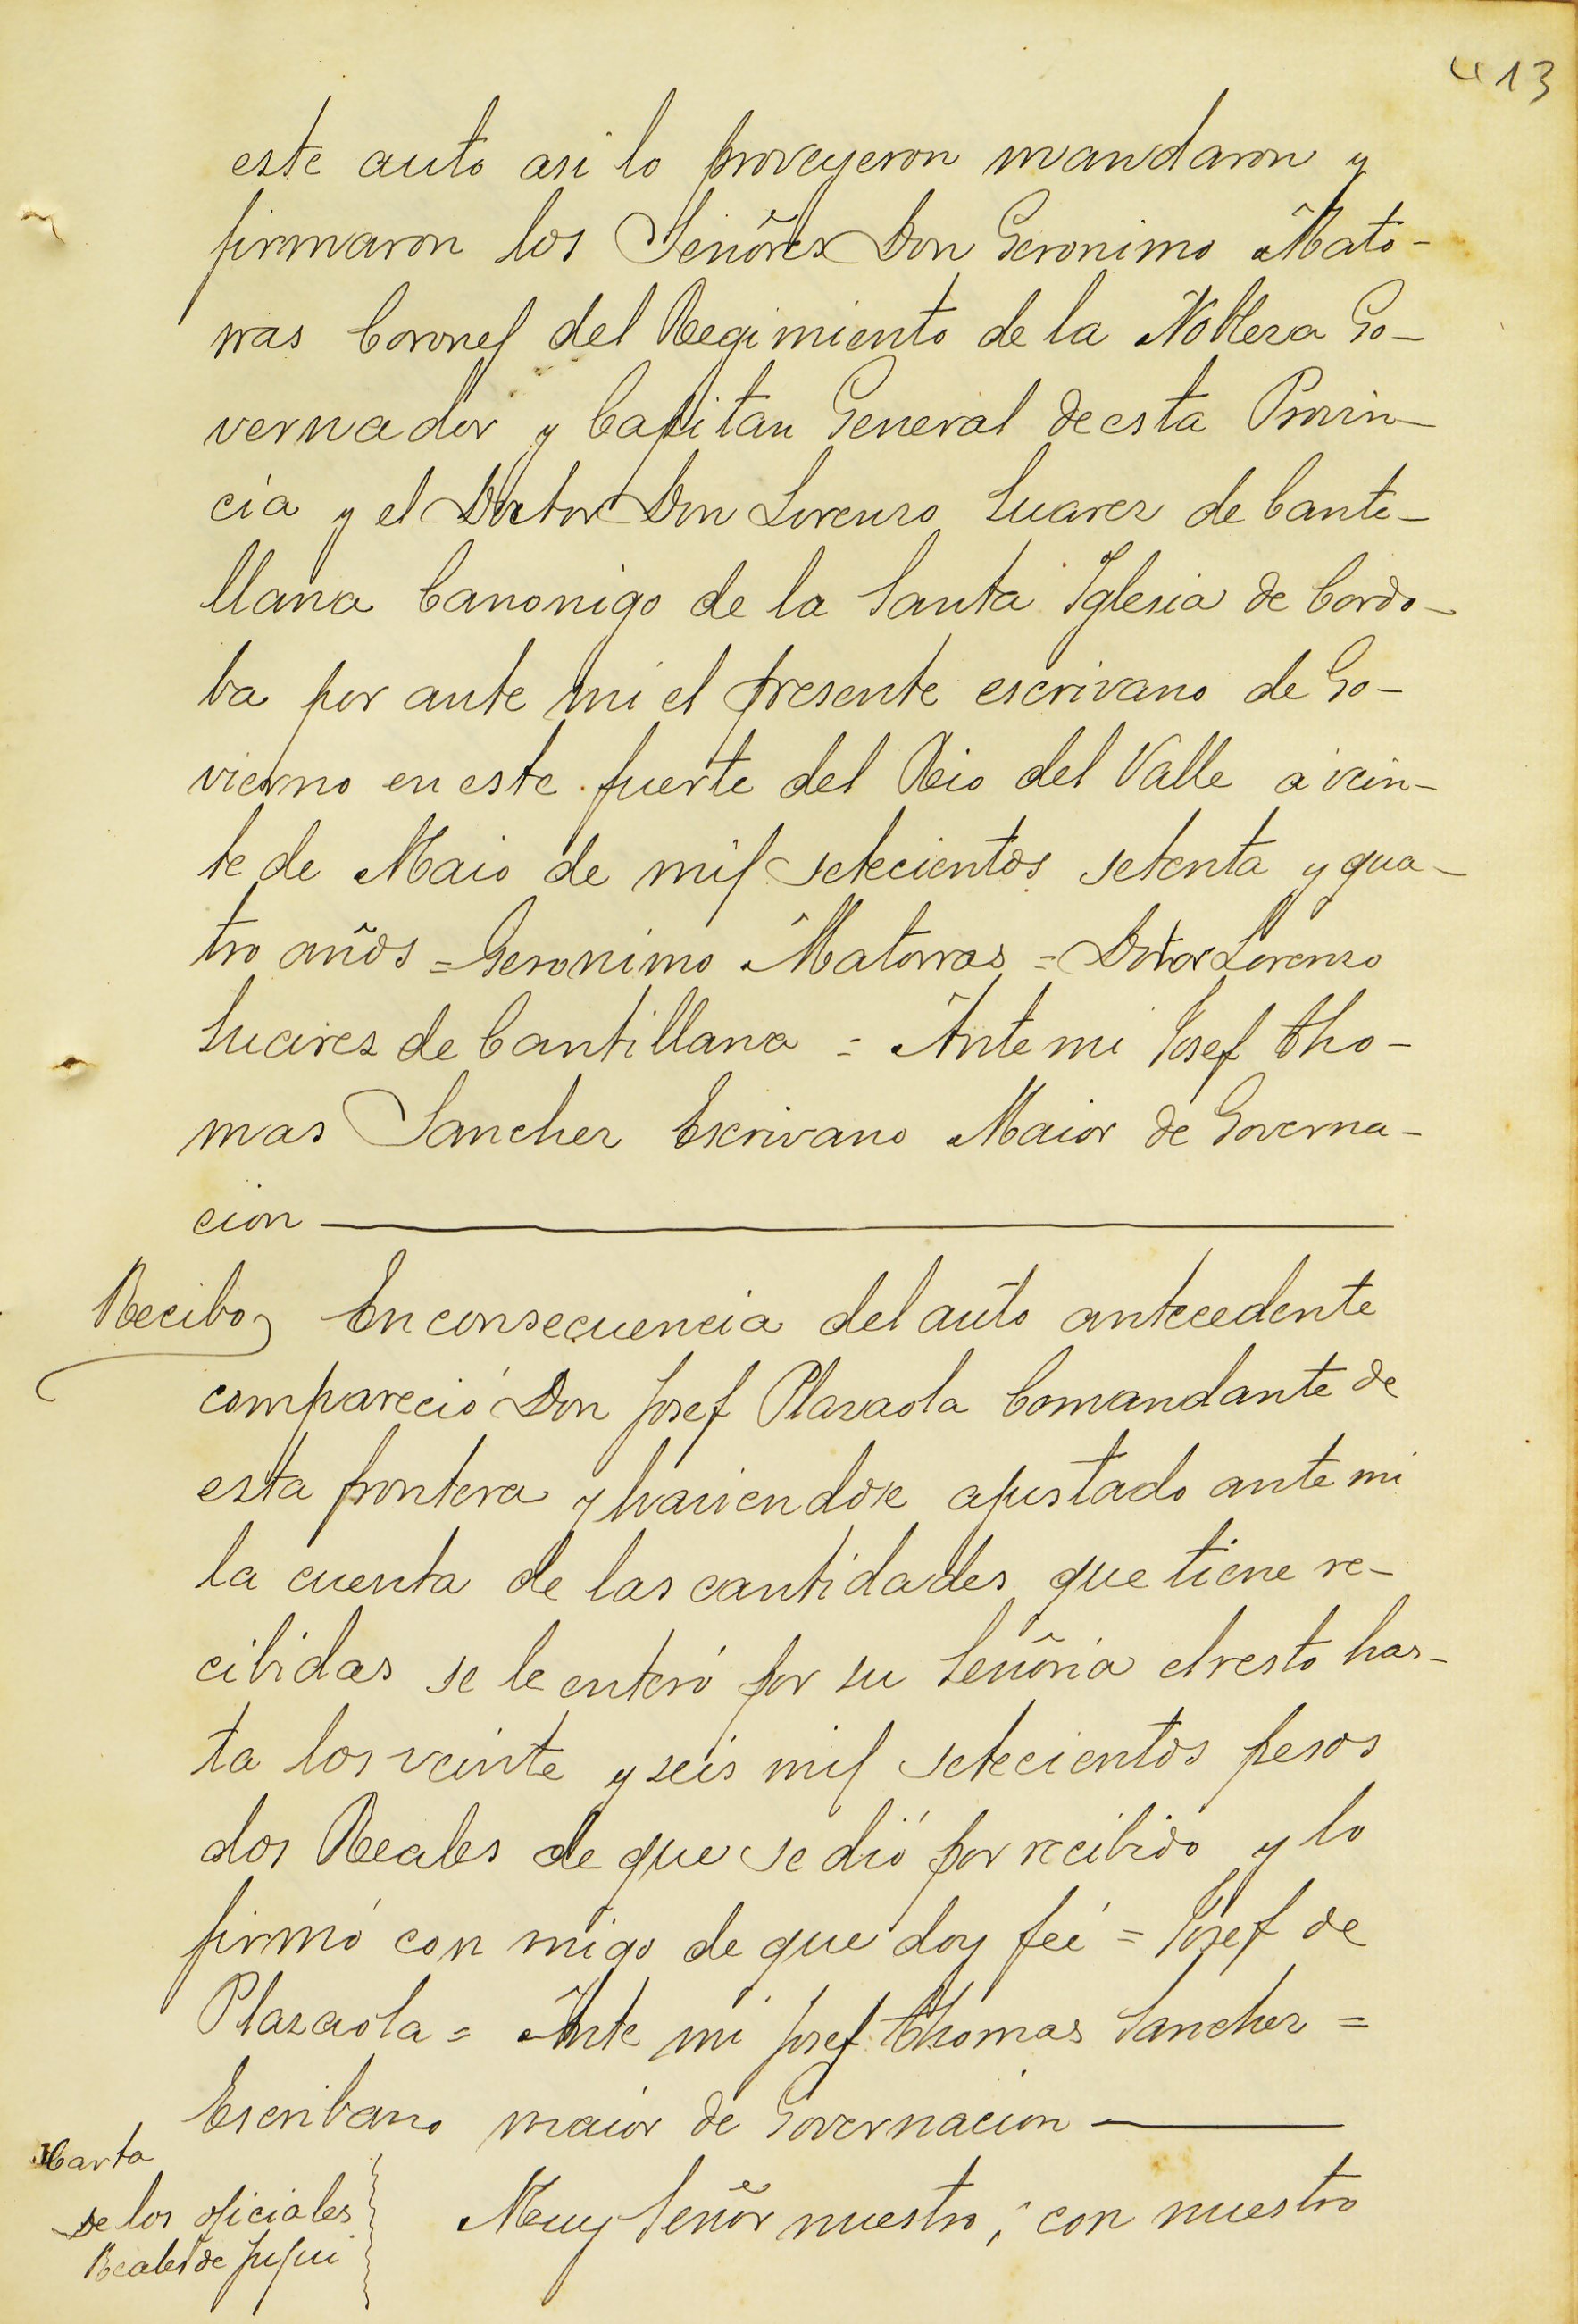 413
este auto asi lo proveyeron mandaron y
firmaron los Señores Don Geronimo Mato-
rras Coronel del Regimiento de la Nobleza Go-
vernador y Capitan General de esta Provin-
cia y el Doctor Don Lorenzo Suarez de Canti-
llana Canonigo de la Santa Iglesia de Cordo-
ba por ante mi el presente escrivano de Go-
vierno en este fuerte del Rio del Valle a vein-
te de Maio de mil setecientos setenta y qua-
tro años = Geronimo Matorras = Dotor Lorenzo
Suarez de Cantillana = Ante mi Josef Tho-
mas Sanchez Escrivano Maior de Governa-
cion
Recibo
En consecuencia del auto antecedente
compareció Don Josef Plazaola Comandante de
esta frontera y haviendose ajustado ante mi
la cuenta de las cantidades que tiene re-
cibidas se le enteró por su Señoria el resto has-
ta los veinte y seis mil setecientos pesos
dos Reales de que se dió por recibido y lo
firmó con migo de que doy feé = Josef de
Plazaola = Ante mi Josef Thomas Sanchez =
Escribano maior de Governacion
Carta
de los oficiales
Reales de Jujui
Muy Señor nuestro; con nuestro